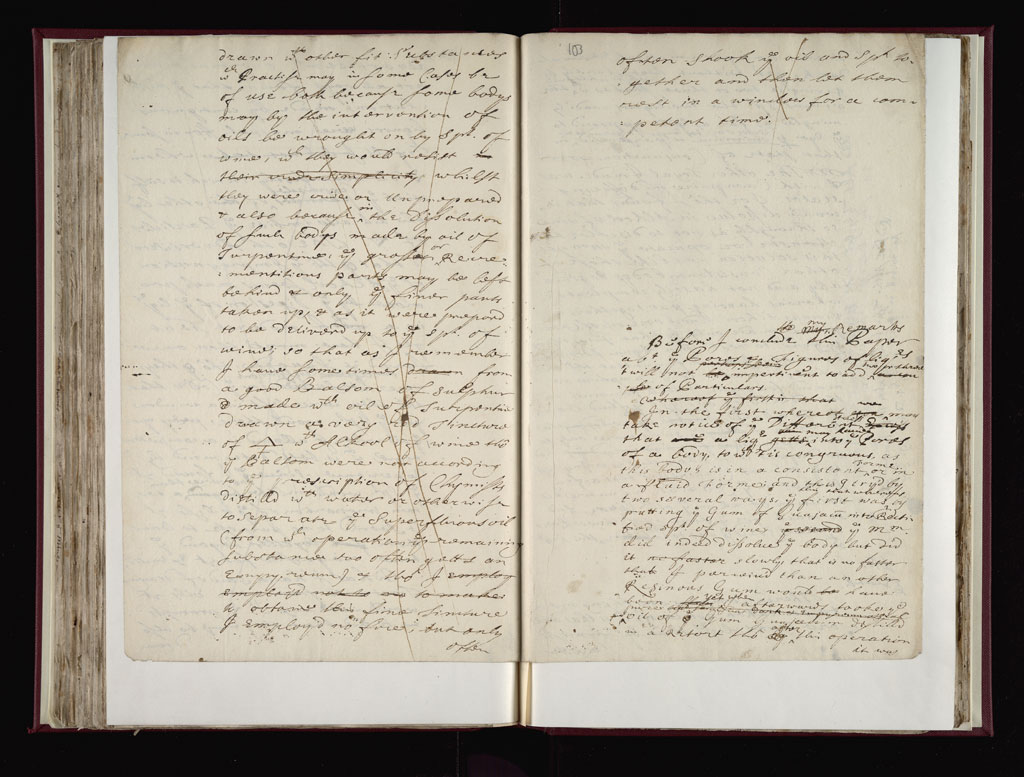 drawn wth other fit Substances
wch Practise may in some Cases be
of use both because some bodys
may by the intervention of
oils be wrought on by Spt. of
wine, wch they would resist in
their simplicity whilst
they were crude or Unprepared
& also because in the Dissolution
of such bodys made by oil of
Turpentine; ye grosser or Recre
:mentitious parts may be left
behind & only ye finer parts
taken up, & as it were prepard
to be deliverd up to ye Spt. of
wine; so that as I remember
I have sometimes drawn from
a good Balsom of Sulphur
made wth oil of Turpentine
drawn a very red Tincture
of wth Alcool of wine tho
ye Balsom were not according
to ye prescription of Chymists
distilld wth water or otherwise
to separate ye Superfluous oil
(from wch operation ye remaining
substance too often getts an
Empyreum) & tho I employ
employd not to make
to obtaine this fine tincture
I employd no fire; but only
often
103
often shook ye oil and Spt. to-
gether and then let them
rest in a window for a com-
petent time.
the my remarks
Before I conclude this Paper
abt. ye Pores & Figures of
t'will not be impertinent to add
of Particulars.
whereof ye first is that
In the first whereof we may
take notice of ye Different
that a into ye Pores
of a body, to wch 'tis congruous, as
this body is in a consistent, or in
a fluid forme: and this I tryd by
two severall ways: ye first was by
putting ye Gum of Guajacu into Recti
fied spt. of wine ye
did indeed dissolve ye body but did
it no faster slowly that is no faster
that I perceivd than an other
Resinous Gum would have
been afterwards tooke ye
oil of Gum distilld
in a retort tho after this operation
it was